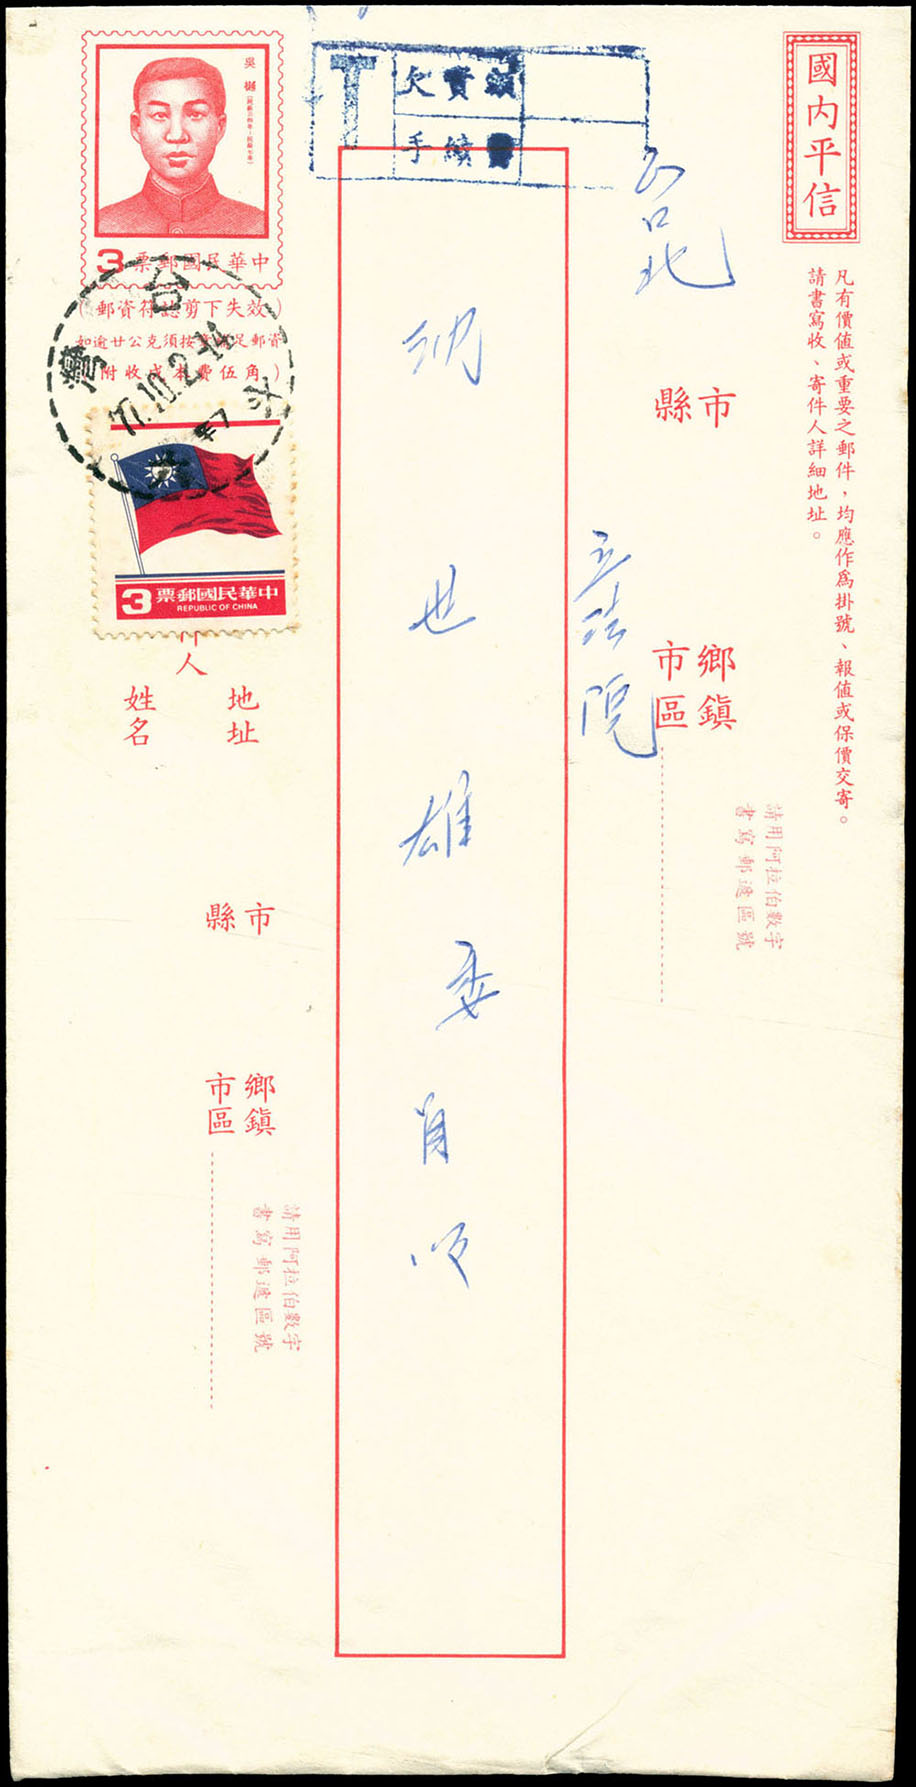 國內平信
凡有價值或重要之郵件，均應作為掛號、報值或保價交寄。
請書寫收、寄件人詳細地址。
台北
縣市
鄉鎮
市區
立法院
請用阿拉伯數字
書寫郵遞區號
T
欠資
手續
世雄委
吳樾
3票郵國民華中
（郵資符誌剪下失效）
如逾廿公克須按
資郵足
附收成本費伍角）
台灣
77.10.2-14
3票郵國民華中
REPUBLIC OF CHINA
人
地址
姓名
縣市
鄉鎮
市區
請用阿拉伯數字
書寫郵遞區號